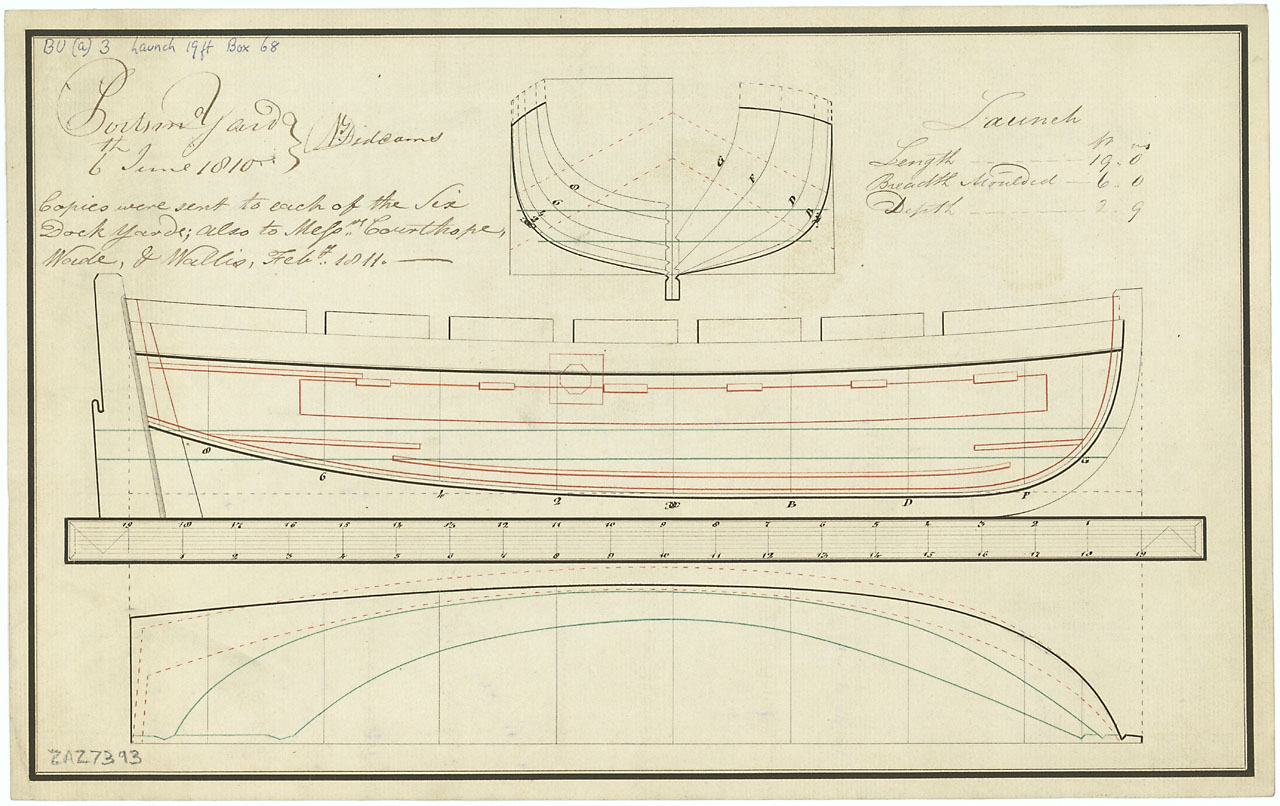 BU (a) 3 Launch 19ft Box 68
Portsmo Yard
6th June 1810
N. Diddams
Copies were sent to each of the Six
Dock Yards; also to Messrs Courthope,
Wade, & Wallis, Feby. 1811.
Launch
ft ins
Length 19. 0
Breadth Moulded 6. 0
Depth 2. 9
8 6 4 2 2 4 6 8 G F D B
8 6 4 2 B D F G
19 18 17 16 15 14 13 12 11 10 9 8 7 6 5 4 3 2 1
1 2 3 4 5 6 7 8 9 10 11 12 13 14 15 16 17 18 19
ZAZ7393